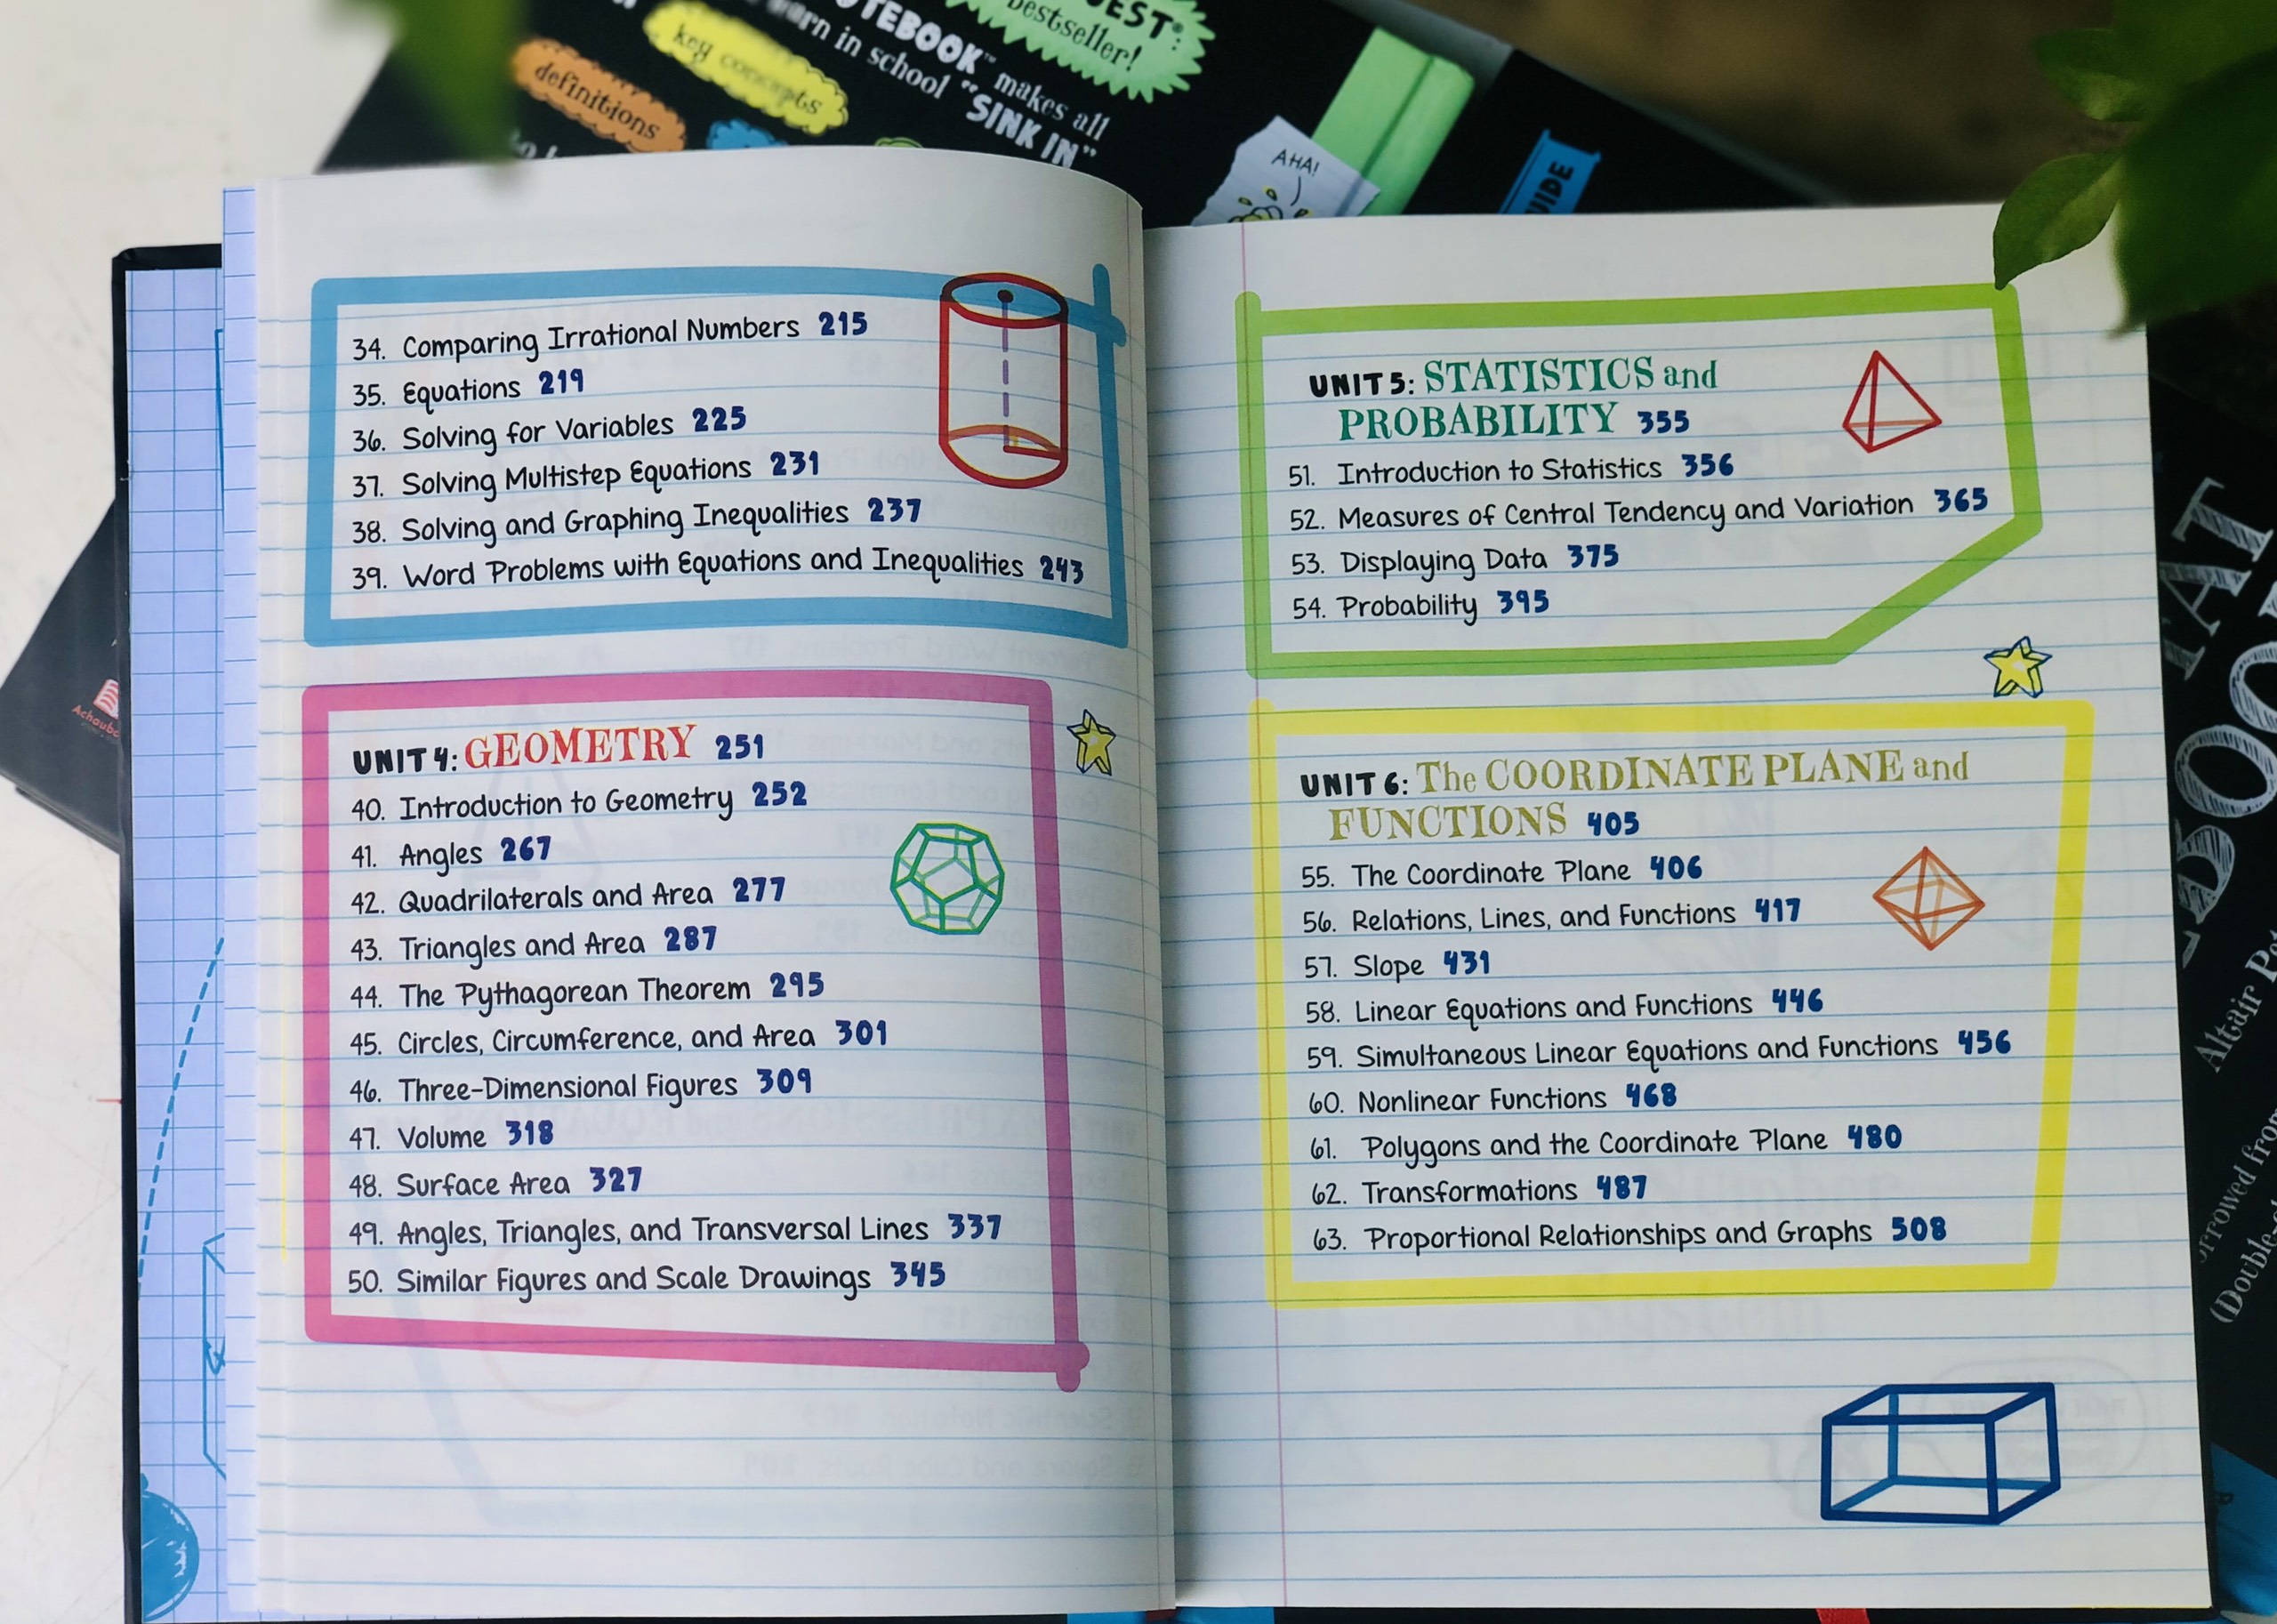 EST:
bestseller!
NOTEBOOK™ makes all
learn in school "SINK IN"
key concepts
definitions
AHA!
34. Comparing Irrational Numbers 215
35. Equations 219
36. Solving for Variables 225
37. Solving Multistep Equations 231
38. Solving and Graphing Inequalities 237
39. Word Problems with Equations and Inequalities 243
UNIT 4: GEOMETRY 251
40. Introduction to Geometry 252
41. Angles 267
42. Quadrilaterals and Area 277
43. Triangles and Area 287
44. The Pythagorean Theorem 295
45. Circles, Circumference, and Area 301
46. Three-Dimensional Figures 309
47. Volume 318
48. Surface Area 327
49. Angles, Triangles, and Transversal Lines 337
50. Similar Figures and Scale Drawings 345
UNIT 5: STATISTICS and
PROBABILITY 355
51. Introduction to Statistics 356
52. Measures of Central Tendency and Variation 365
53. Displaying Data 375
54. Probability 395
UNIT 6: The COORDINATE PLANE and
FUNCTIONS 405
55. The Coordinate Plane 406
56. Relations, Lines, and Functions 417
57. Slope 431
58. Linear Equations and Functions 446
59. Simultaneous Linear Equations and Functions 456
60. Nonlinear Functions 468
61. Polygons and the Coordinate Plane 480
62. Transformations 487
63. Proportional Relationships and Graphs 508
Altair